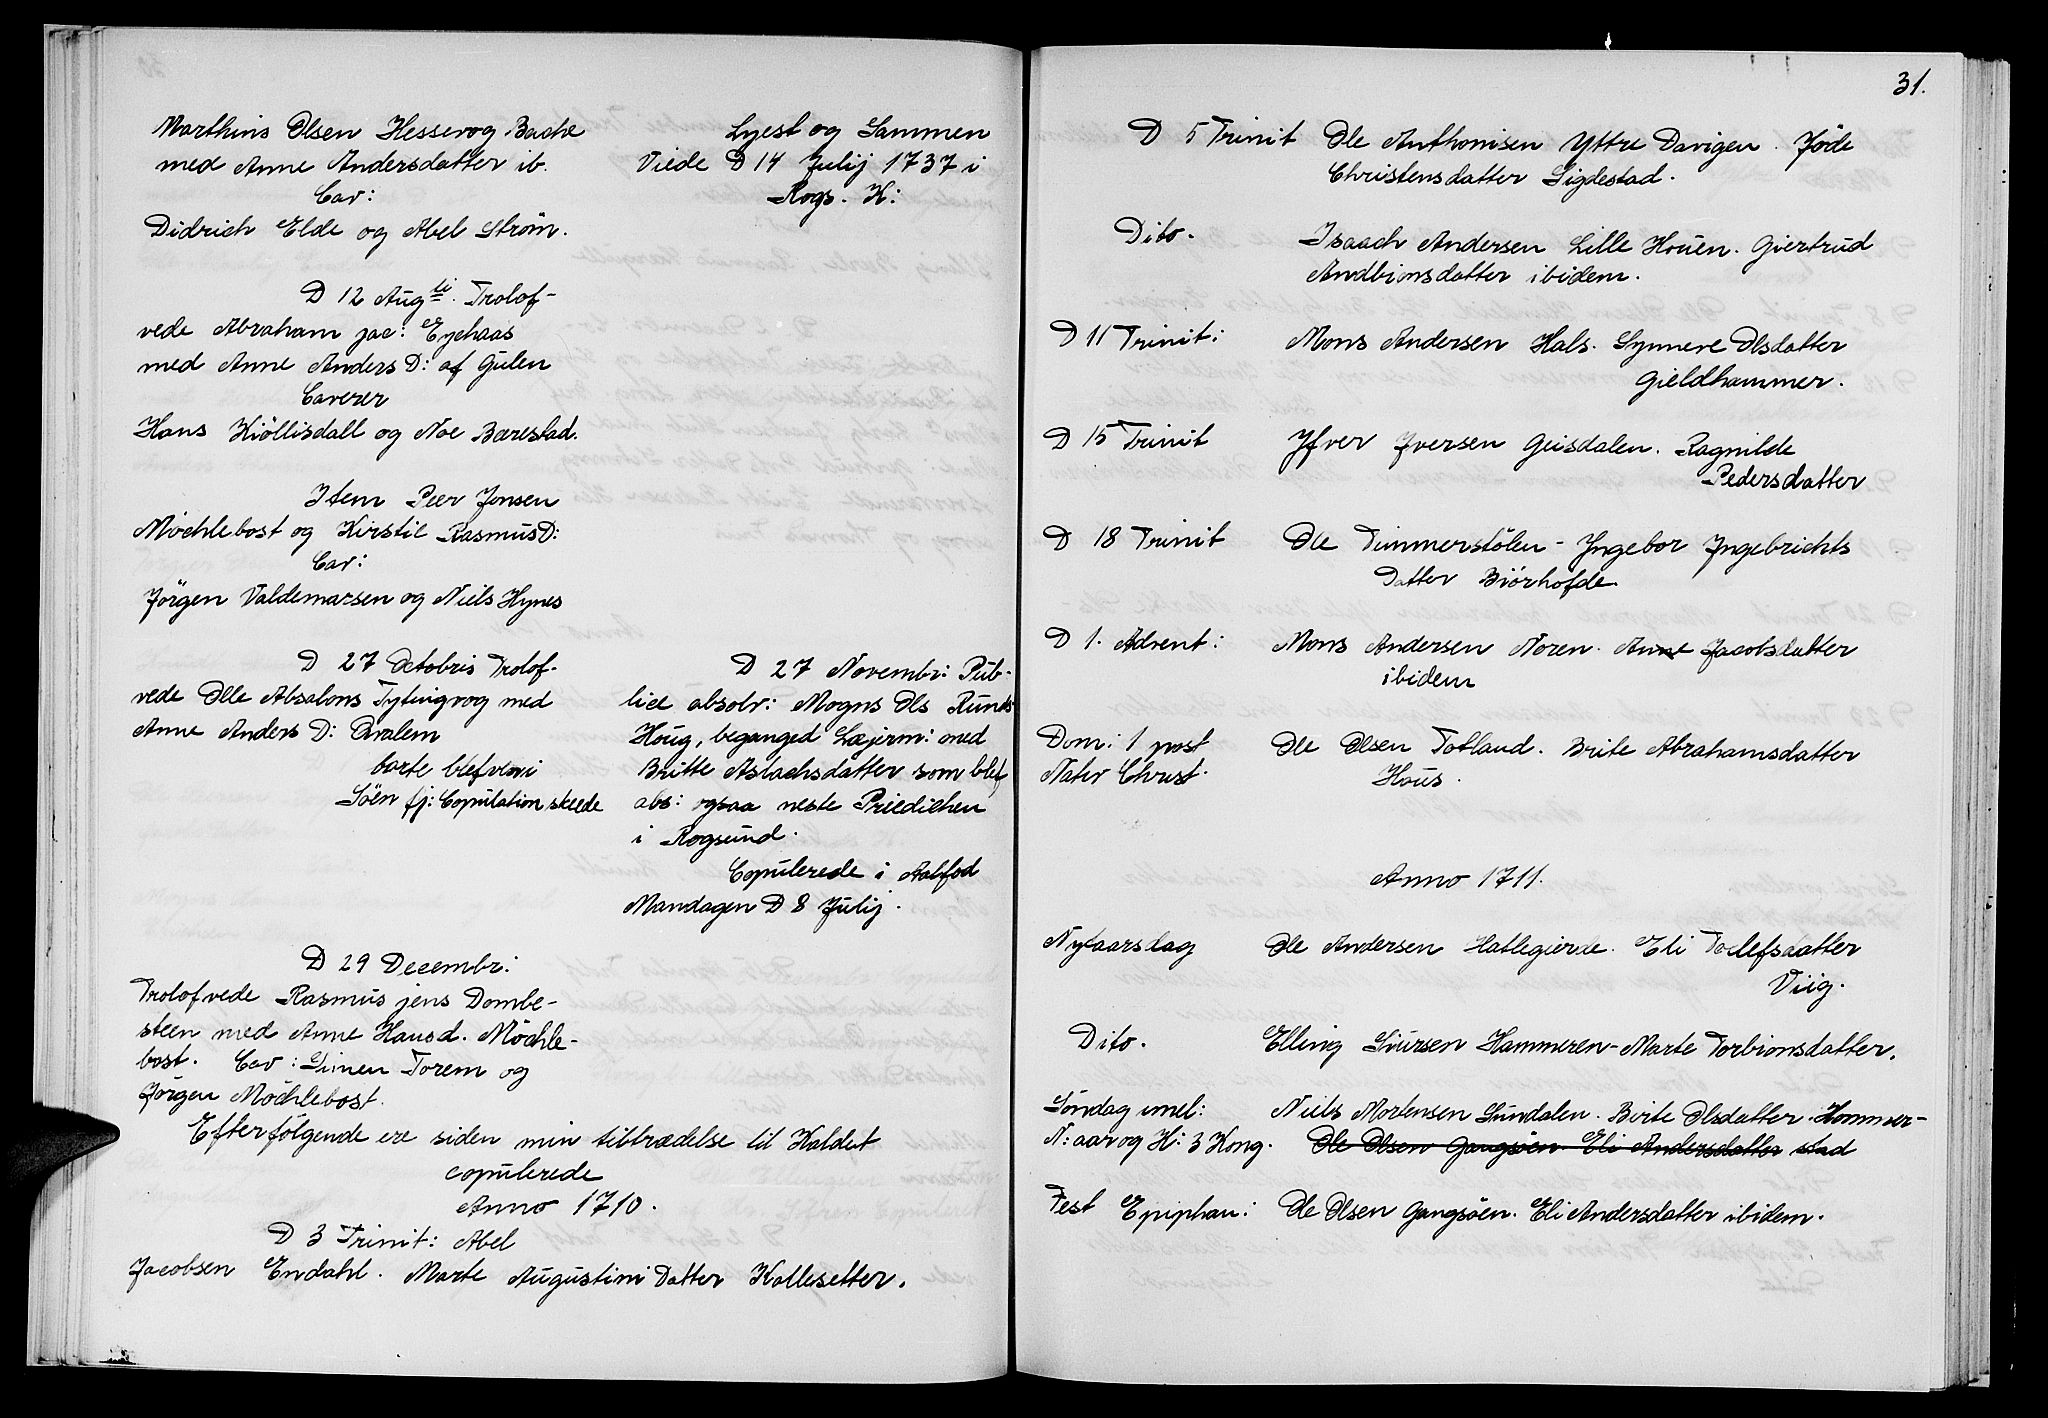 Marthins Olsen Hessevog Bache
med Anne Andersdatter ib.
Cav:
Didrich Elde og Abel Strøm.
Lyest og Sammen
Viede D 14 Julij 1737 i
Rogs. K:
D 12 Aug ti. Trolof-
vede Abraham jac: Eychaas
med Anne Anders D: af Gulen
Caverer
Hans Kiöllisdall og Noe Barestad.
Item Peer Jonsen
Möchlebost og Kirstil Rasmus D:
Cav:
Jörgen Valdemarsen og Niels Hynes
D 27 Octobris Trolof-
vede Olle Absalons Tytingvog med
Anne Anders D: Qvalem
borte blefven i
Söen fj: Copulation skeede
D 27 Novembr: Pub-
lice absolv: Mogns Ols Runds
Houg, beganged Læjerm: med
Britte Aslachsdatter som blef
abs: ogsaa neste Priedichen
i Rogsund.
Copulerede i Aalfod
Mandagen D 8 Julij.
D 29 Decembr:
Trolofvede Rasmus jens Dombe-
steen med Anne Hansd. Möchle-
bost. Cav: Simen Torem og
Jörgen Möchlebost.
Efterfölgende ere siden min tiltrædelse til Kaldet
copulerede
Anno 1710.
D 3 Trinit: Abel
Jacobsen Endahl. Marte Augustini Datter Kollesetter.
31.
D 5 Trinit Ole Anthonisen Yttre Davigen. Jöde
Christensdatter Sigdestad.
Dito. Isaach Andersen Lille Houen. Giertrud
Andbionsdatter ibidem.
D 11 Trinit: Mons Andersen Hals. Synneve Olsdatter
Gieldhammer.
D 15 Trinit Yfver Iversen Geisdalen. Ragnilde
Pedersdatter
D 18 Trinit Ole Timmerstölen - Ingebor Ingebrichts
Datter Biörhofde.
D 1. Advent: Mons Andersen Noren. Anne Jacobsdatter
ibidem
Dom: 1 post Ole Olsen Totland. Brite Abrahamsdatter
Nativ Christ. Hous.
Anno 1711.
Nytaarsdag Ole Andersen Hatlegierde. Eli Toclefsdatter
Viig.
Dito. Elling Siursen Hammeren - Marte Torbionsdatter.
Söndag imel: Niels Mortensen Sundalen. Birte Olsdatter Hommer-
N: aar og H: 3 Kong. Ole Olsen Gangsöen. Eli Andersdatter stad
Fest Epiphan: Ole Olsen Gangsöen. Eli Andersdatter ibidem.